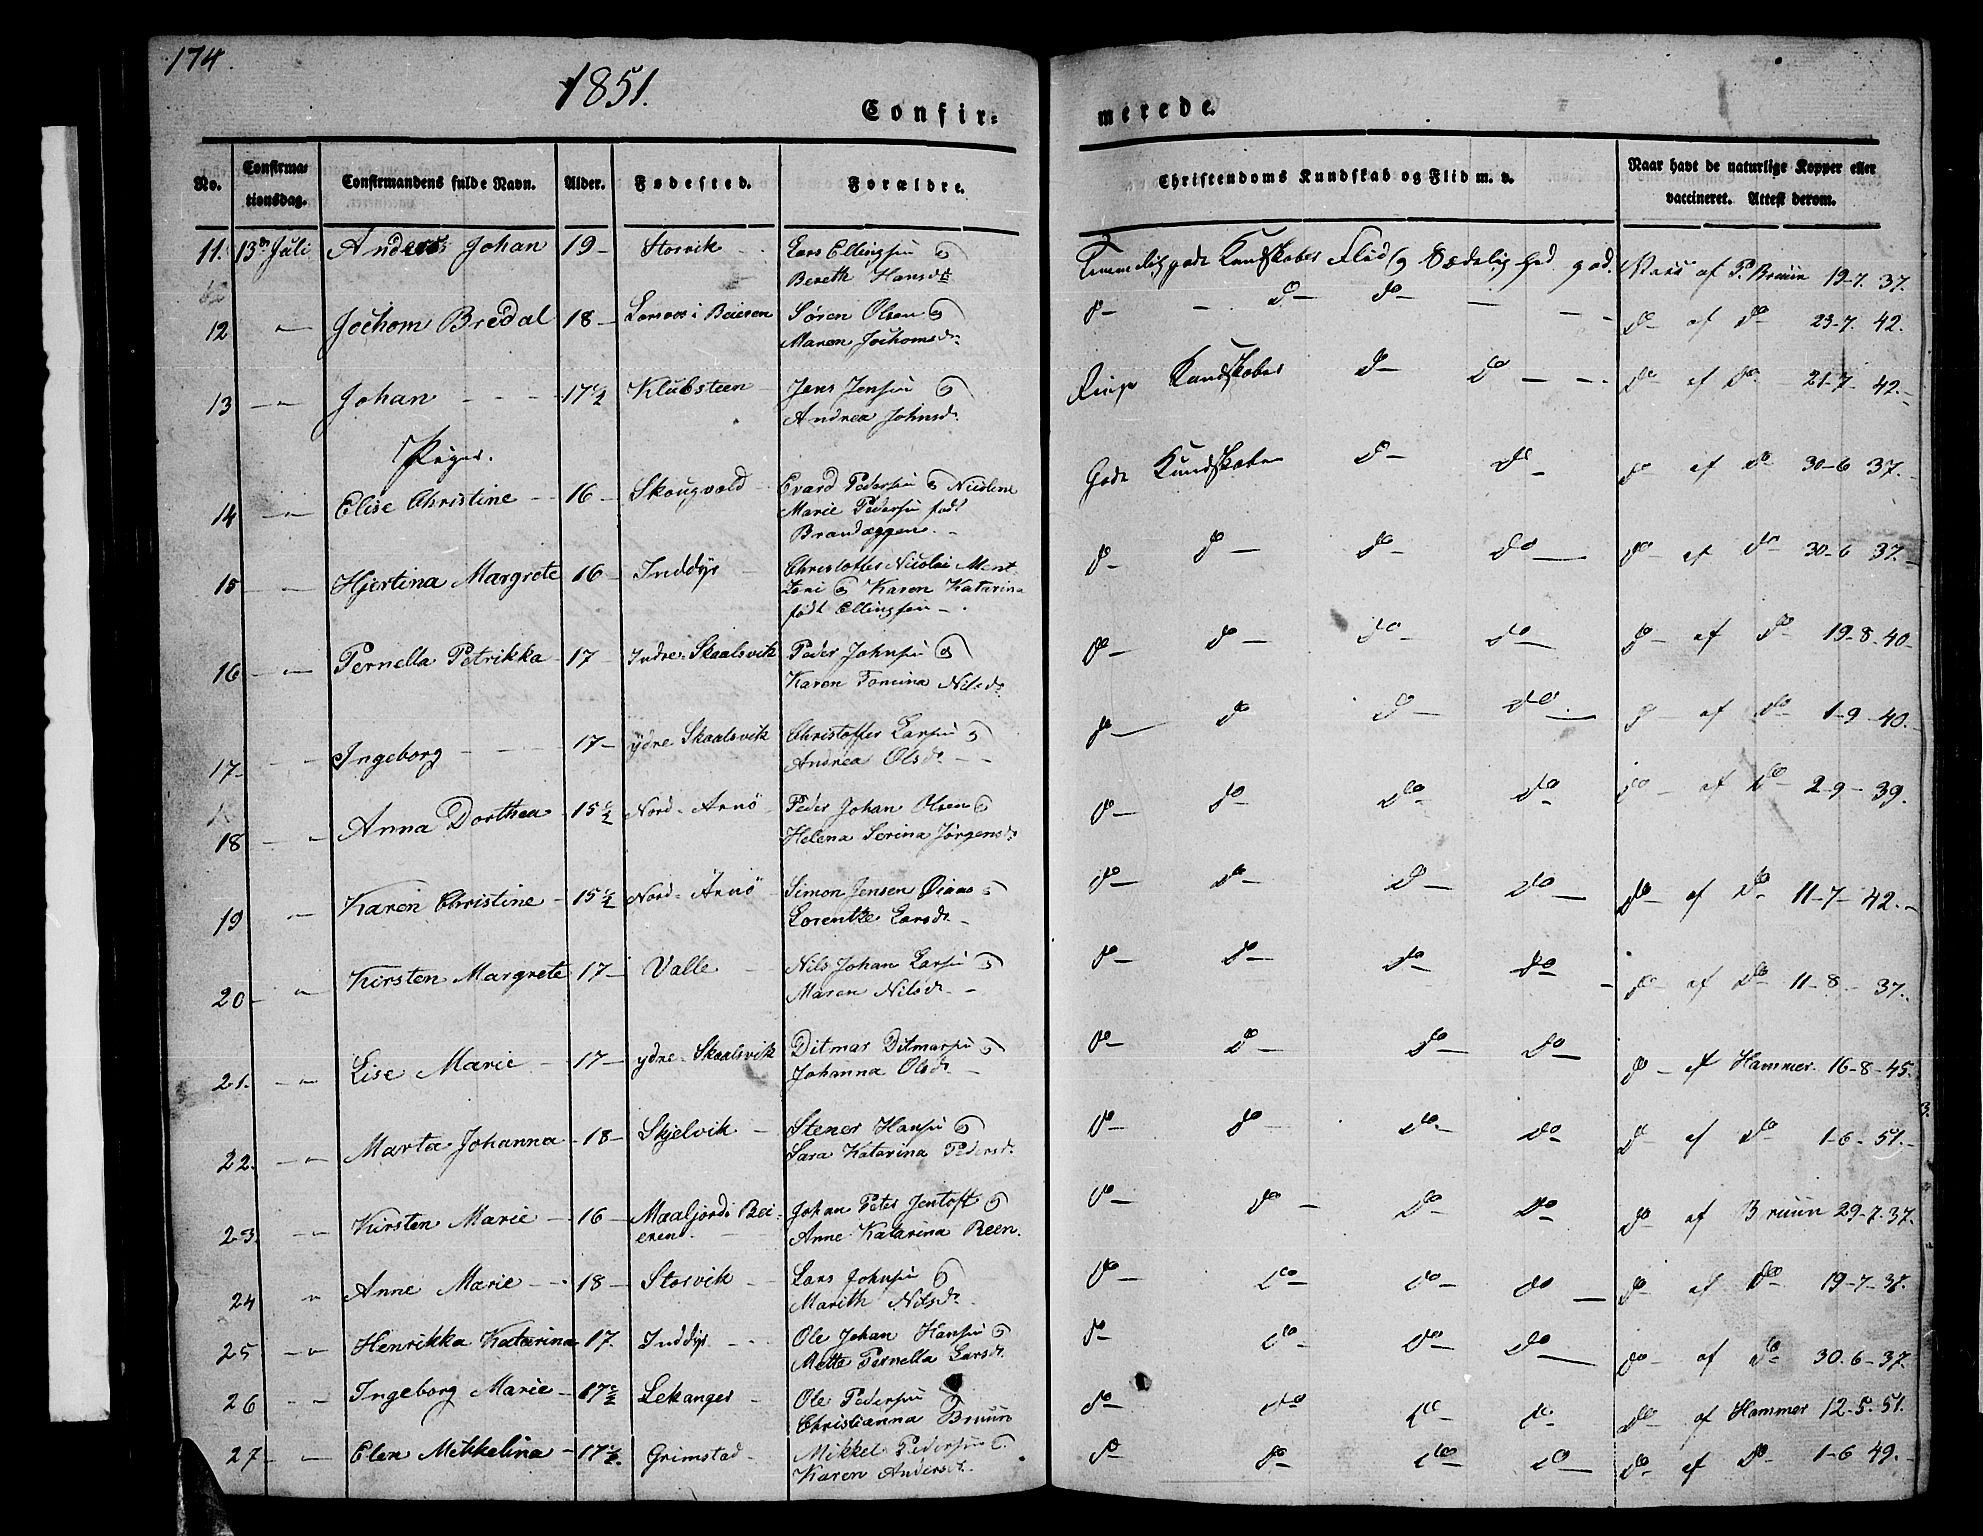 174.
1851.
Confir=
merede.
No. Confirma= tionsdag. Confirmandens fulde Navn. Alder. Fødested. Forældre. Christendoms Kundskab og Flid m. v. Naar havt de naturlige Kopper eller vaccineret. Attest derom.
11. 13de Juli Anders Johan 19 - Storvik Lars Ellingsen og Temmelig gode Kundskaber Flid og Sædelighed god. Vacc af P. Bruun 19-7. 37.
Bereth Hansdtr
12 — Jochom Bredal 18 - i Beieren Søren Olsen og do — do — do — do af do 23-7. 42.
Maren Jochomsdr.
13 — Johan 17½ Klubsteen Jens Jensen og Ringe Kundskaber do — do — do af do 21-7- 42.
Andrea Johnsdr.
Piger.
14 — Elise Christine 16 - Skougvold Evard Pedersen og Nicoline Gode Kundskaber do — do — do af do 30-6 37.
Marie Pedersen født
Brandæggen.
15 — Hjertina Margrete 16 - Inddyr Christoffer Nicolai Ment= do — do — do — do — do af do 30-6 37.
zoni og Karen Katarina
født Ellingsen
16 — Pernella Petrikka 17 - Indre-Skaalsvik Peder Johnsen og do — do — do — do — do af do 19-8-40.
Karen Tomina Nilsdr.
17 — Ingeborg 17 - ydre Skaalsvik Christoffer Larsen og do — do — do — do — do af do 1-9-40.
Andrea Olsdr.
18 — Anna Dorthea 15½ Nord-Arnö Peder Johan Olsen og do — do — do — do — do af do 2-9-39.
Helena Serina Jørgensdr
19 — Karen Christine 15½ Nord-Arnö Simon Jensen Øiaas og do — do — do — do — do af do 11-7-42.
Lorentze Larsdr.
20 — Kirsten Margrete 17 - Valle Nils Johan Larsen og do — do — do — do — do af do 11-8-37.
Maren Nilsdr.
21. — Lise Marie 17 - ydre-Skaalsvik Ditmar Ditmarsen og do — do — do — do — do — af Hammer. 16-8-45.
Johanna Olsdr.
22. — Marta Johanna 18 - Skjelvik Stener Hansen og do — do — do — do — do af do 1-6-51.
Sara Katarina Pedersdr.
23. — Kirsten Marie 16 - Maaljord i Bei= Johan Peter Jentoft og do — do — do — do — do af Bruun 29-7.37.
eren Anne Katarina Reen.
24 — Anne Marie 18 - Storvik Lars Johnsen og do — do — do — do — do af do 19-7-37.
Marith Nilsdr.
25 — Henrikka Katarina 17. Inddyr Ole Johan Hansen og do — do — do — do — do — af do 30.6-37.
Mette Pernella Larsdr.
26 — Ingeborg Marie 17½ Lekanger Ole Pedersen og do — do — do — do — do — af Hammer 12-5.51.
Christianna Bruun
27 — Elen Mikkelina 17½ Grimstad Mikkel Pedersen og do — do — do — do — do af do 1-6 49.
Karen Andersdr.